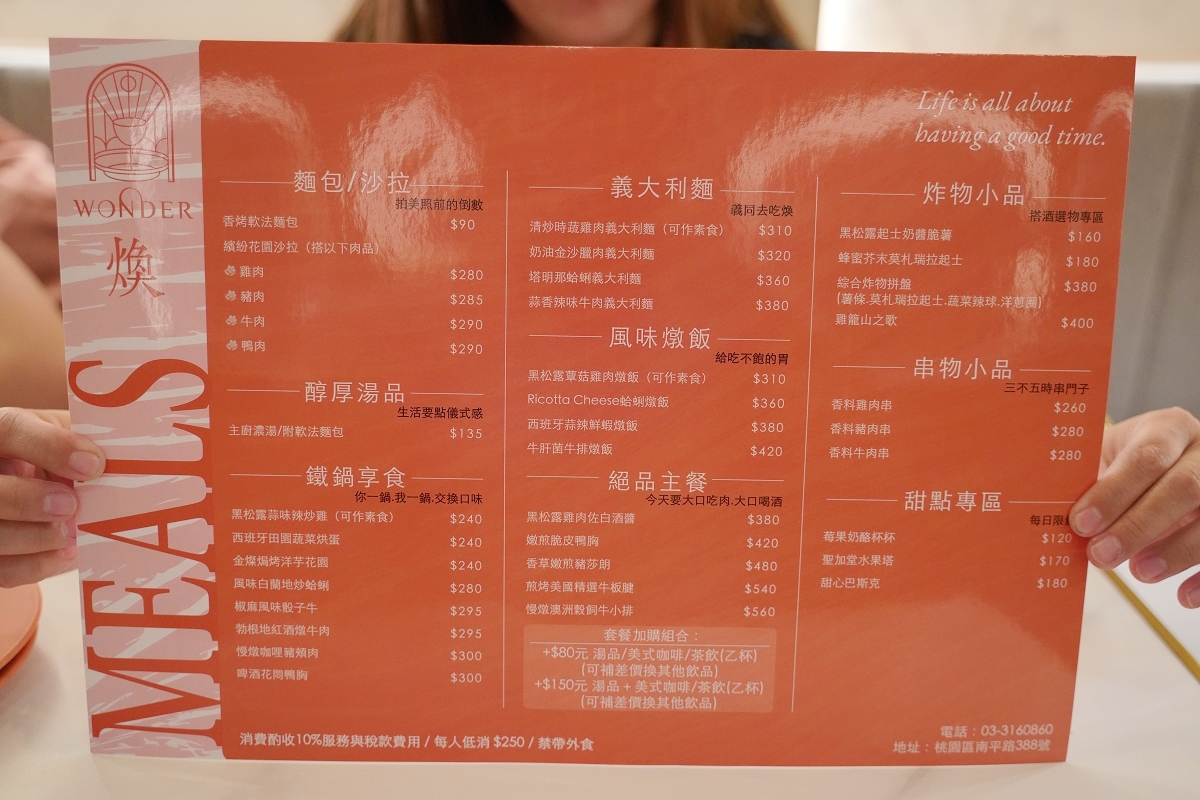 WONDER
煥
MEALS
Life is all about
having a good time.
麵包/沙拉
拍美照前的倒數
香烤軟法麵包 $90
繽紛花園沙拉（搭以下肉品）
雞肉 $280
豬肉 $285
牛肉 $290
鴨肉 $290
醇厚湯品
生活要點儀式感
主廚濃湯/附軟法麵包 $135
鐵鍋享食
你一鍋.我一鍋.交換口味
黑松露蒜味辣炒雞（可作素食） $240
西班牙田園蔬菜烘蛋 $240
金燦焗烤洋芋花園 $240
風味白蘭地炒蛤蜊 $280
椒麻風味骰子牛 $295
勃根地紅酒燉牛肉 $295
慢燉咖哩豬頰肉 $300
啤酒花悶鴨胸 $300
義大利麵
義同去吃煥
清炒時蔬雞肉義大利麵（可作素食） $310
奶油金沙臘肉義大利麵 $320
塔明那蛤蜊義大利麵 $360
蒜香辣味牛肉義大利麵 $380
風味燉飯
給吃不飽的胃
黑松露蕈菇雞肉燉飯（可作素食） $310
Ricotta Cheese蛤蜊燉飯 $360
西班牙蒜辣鮮蝦燉飯 $380
牛肝菌牛排燉飯 $420
絕品主餐
今天要大口吃肉.大口喝酒
黑松露雞肉佐白酒醬 $380
嫩煎脆皮鴨胸 $420
香草嫩煎豬莎朗 $480
煎烤美國精選牛板腱 $540
慢燉澳洲穀飼牛小排 $560
套餐加購組合：
+$80元 湯品/美式咖啡/茶飲(乙杯)
(可補差價換其他飲品)
+$150元 湯品 + 美式咖啡/茶飲(乙杯)
(可補差價換其他飲品)
炸物小品
搭酒選物專區
黑松露起士奶醬脆薯 $160
蜂蜜芥末莫札瑞拉起士 $180
綜合炸物拼盤 $380
(薯條.莫札瑞拉起士.蔬菜辣球.洋蔥圈)
雞籠山之歌 $400
串物小品
三不五時串門子
香料雞肉串 $260
香料豬肉串 $280
香料牛肉串 $280
甜點專區
每日限
莓果奶酪杯杯 $120
聖加堂水果塔 $170
甜心巴斯克 $180
消費酌收10%服務與稅款費用 / 每人低消 $250 / 禁帶外食
電話：03-3160860
地址：桃園區南平路388號